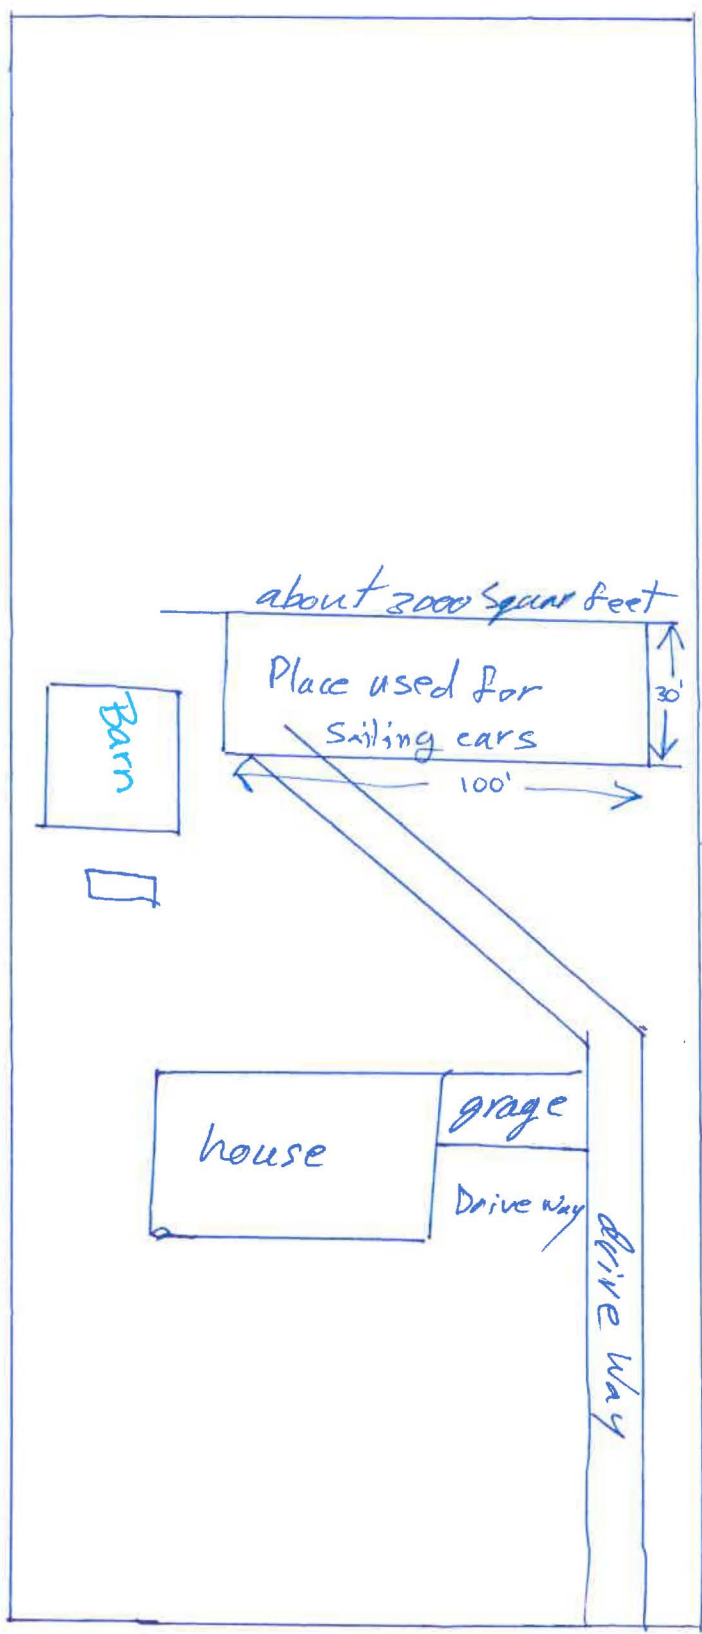 about 3000 Squar feet
Place used for
Sailing cars
30'
100'
Barn
house
grage
Drive Way
drive Way